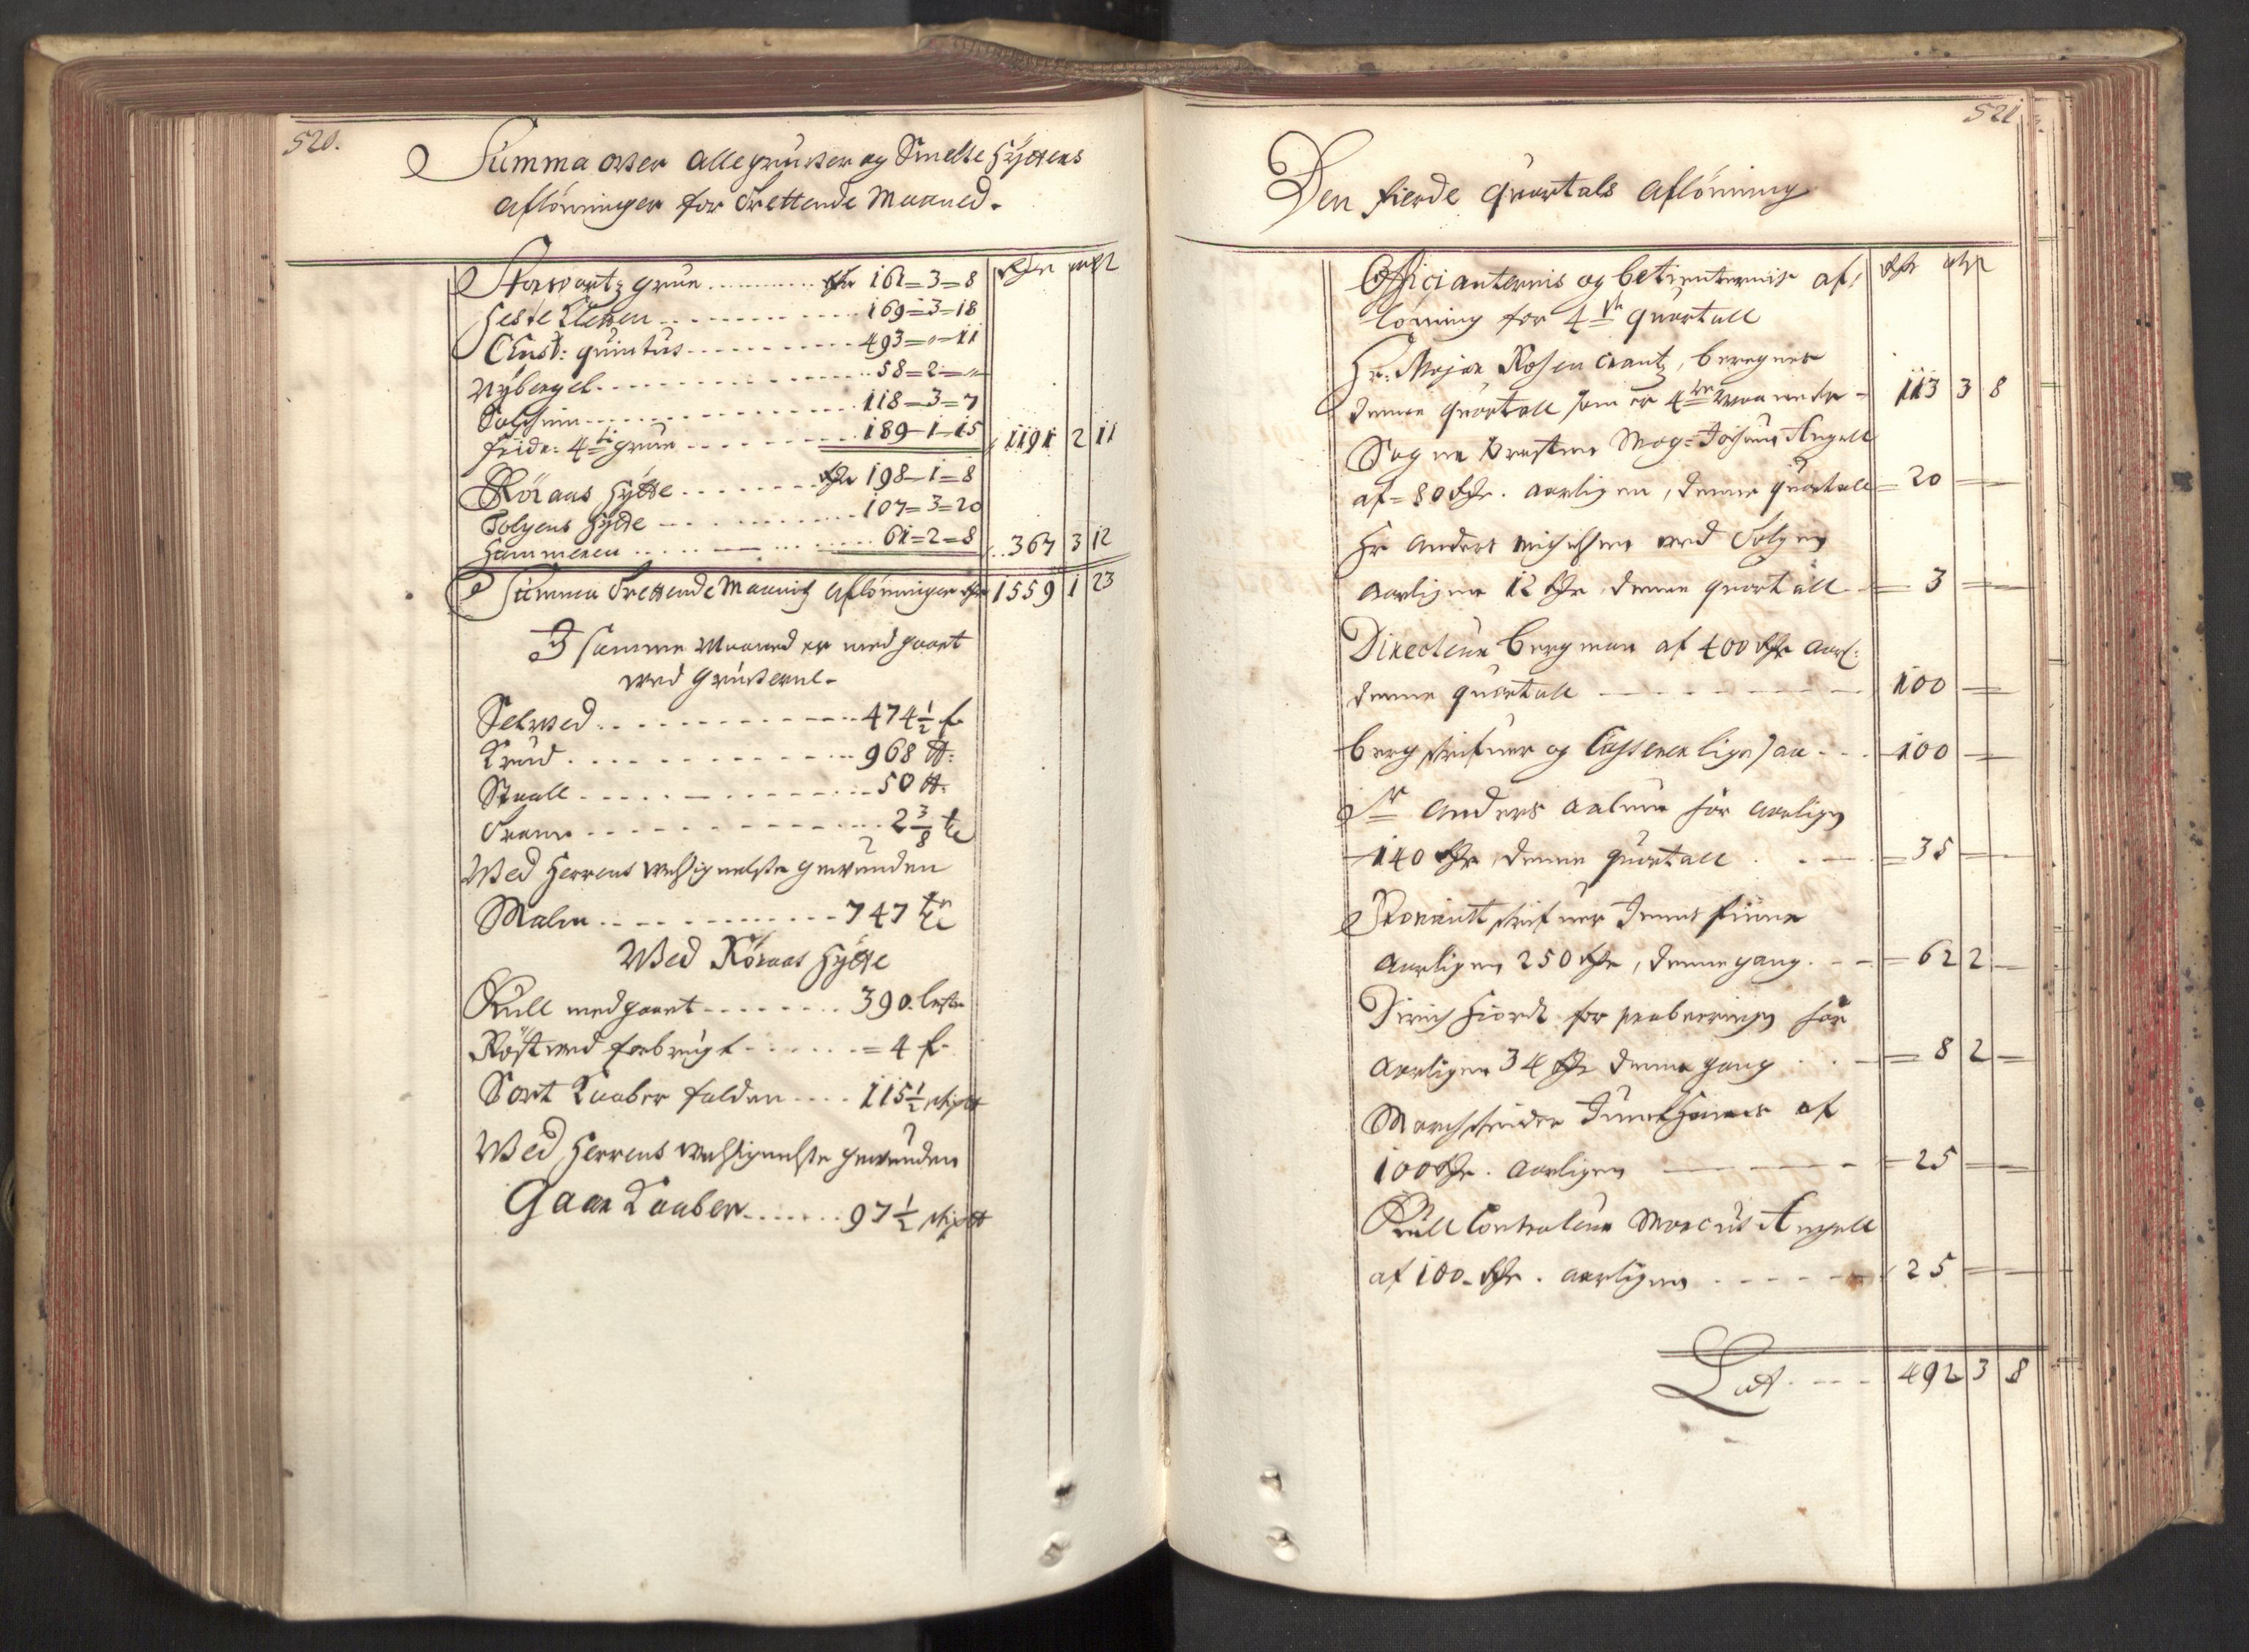 520.
Summa over alle gruver og Smelte Hÿttens
aflönninger for Trettende Maaned.
Rdr mk s
Storvartz grue .......... Rdr 161=3=8
Heste Kletten .......... 169=3=18
Christ: quintus .......... 493=0=11
Nÿberget .......... 58=2=„
.......... 118=3=7
Fride: 4ti grue .......... 189=1=15 1191 2 11
Röraas Hÿtte .......... Rdr 198=1=8
Tolgens Hÿtte .......... 107=3=20
Hammeren .......... 61=2=8 367 3 12
Summa Trettende Maanitz aflönninger Rdr 1559 1 23
I samme Maaned er medgaaet
ved gruverne.
Setved .......... 474½ f
Krud .......... 968 ℔:
Staall .......... 50 ℔:
Trann .......... 2 3/8 te
Ved Herrens velsignelse gevunden
Malm .......... 747 tr
Ved Röraas Hÿtte
Kull medgaaet .......... 390. lester
Röstved forbrugt .......... = 4 f.
Sort Kaaber falden .... 115½ skip℔
Ved Herrens velsignelse gevunden
Gaar Kaaber .......... 97½ skip℔
521
Den fierde quartals aflönning
Rdr mk s
Officianternis og betienternis af-
lönning for 4de quartall
Hr: Major Rosencrantz, beregnes
denne quartall som er 4re maaneder = 113 3 8
Sogne Præsten Mag: Johan Angell
af = 80 Rdr. aarligen, denne quartall = 20
Hr Anders ved Tolgen
aarligen 12 Rdr denne quartall = 3
Directeur Bergman af 400 Rdr aarl:
denne quartall .......... 100
bergskrifver og Cassereren ligesaa ... 100
Sr Anders for aarligen
140 Rdr, denne quartall .... = 35
Proviantskrifver Jens Finne
aarligen 250 Rdr, denne gang. = 62 2
Dirich Hiort for probeeringen for
aarligen 34 Rdr denne gang .. = 8 2
Marchskeider af
100 Rdr. aarligen .......... = 25
Kull Contraleur Marcus Angell
af 100. Rdr. aarligen .......... 25
Lat .... 492 3 8